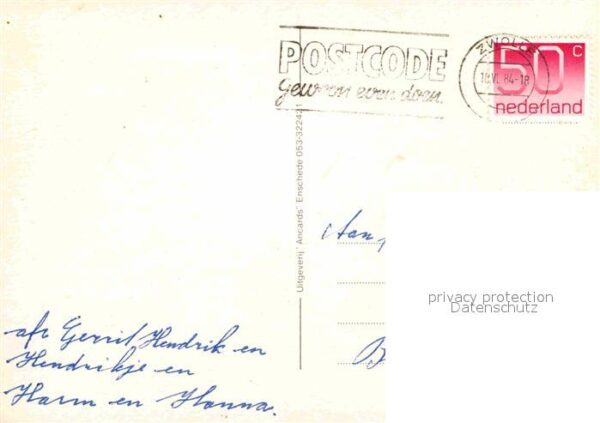 POSTCODE
gewoon even doen.
ZWOLLE
18.VI.84-18
50 c
nederland
Uitgeverij "Ancards" Enschede 053-322421
Aan
privacy protection
Datenschutz
afz Gerrit Hendrik en
Hendrikje en
Harm en Hanna.